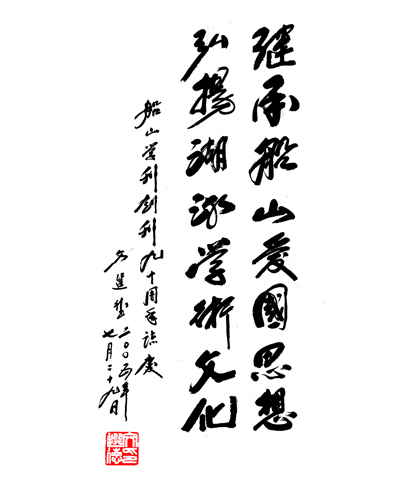 继承船山爱國思想
弘揚湖湘学術文化
船山学刊创刊九十周年誌慶
文選德 二〇〇五年
七月二十九日